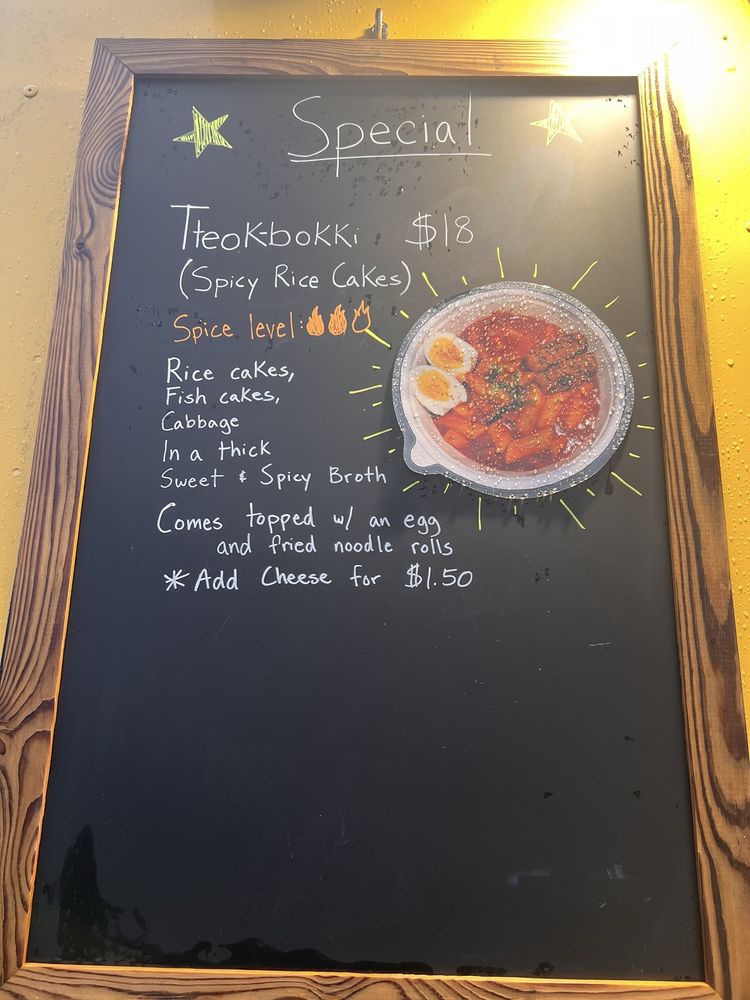 Special
Tteok-bokki $18
(Spicy Rice Cakes)
Spice level:
Rice cakes,
Fish cakes,
Cabbage
In a thick
Sweet & Spicy Broth
Comes topped w/ an egg
and fried noodle rolls
* Add Cheese for $1.50